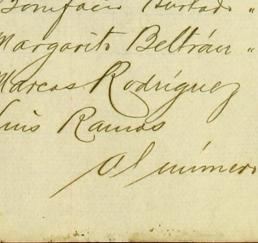 Bonifacio Hurtado "
Margarito Beltrán "
Marcos Rodríguez
Luis Ramos
Al número